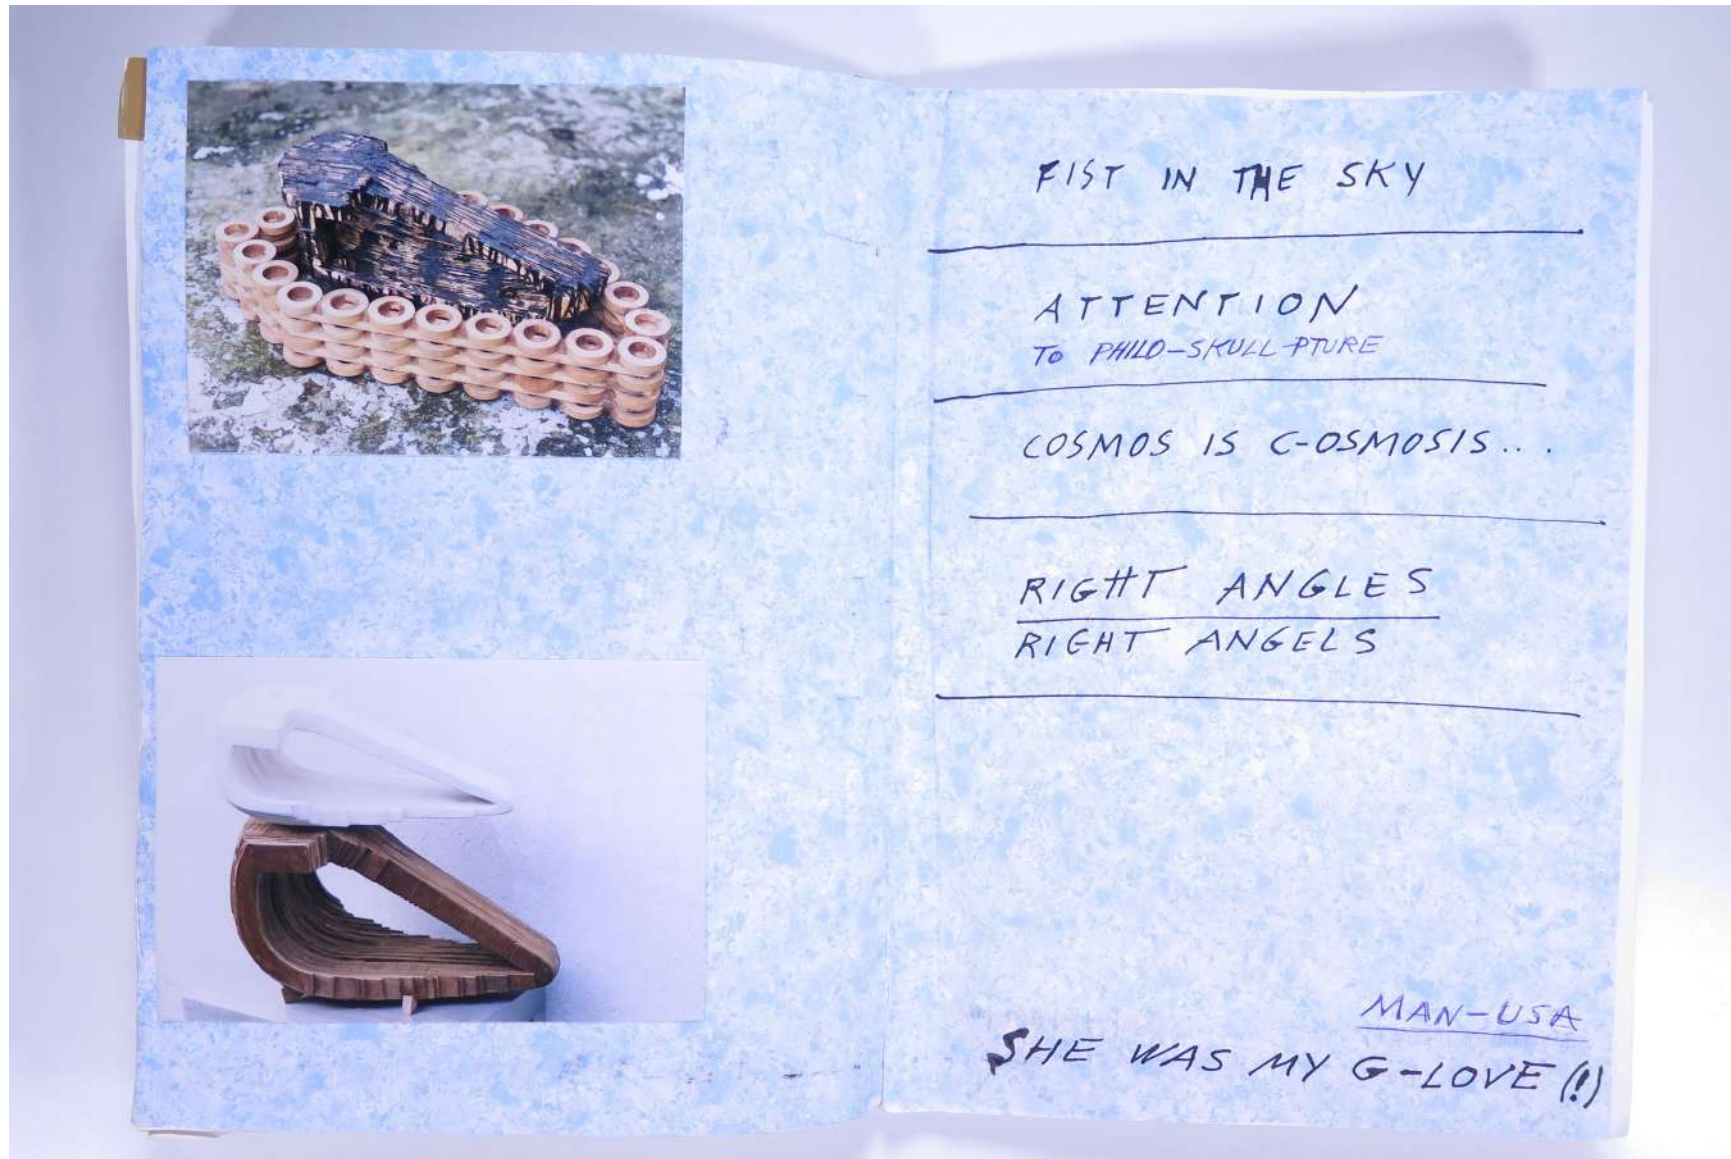 FIST IN THE SKY
ATTENTION
TO PHILO-SKULL-PTURE
COSMOS IS C-OSMOSIS...
RIGHT ANGLES
RIGHT ANGELS
MAN-USA
SHE WAS MY G-LOVE (!)